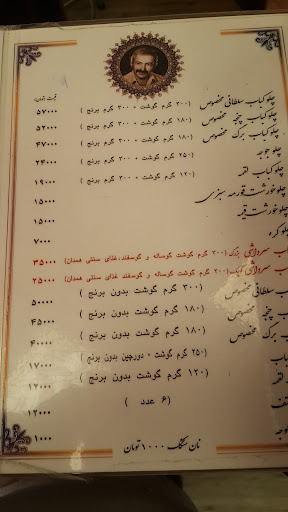 قیمت تومان
چلوکباب سلطانی مخصوص (۳۰۰ گرم گوشت + ۳۰۰ گرم برنج) ۵۷۰۰۰
چلوکباب پنجه مخصوص (۱۸۰ گرم گوشت + ۳۰۰ گرم برنج) ۵۲۰۰۰
چلوکباب برگ مخصوص (۱۸۰ گرم گوشت + ۳۰۰ گرم برنج) ۴۷۰۰۰
چلو جوجه (۲۵۰ گرم گوشت + ۳۰۰ گرم برنج) ۲۴۰۰۰
چلوکباب لقمه (۱۲۰ گرم گوشت + ۳۰۰ گرم برنج) ۱۹۰۰۰
چلوخورشت قورمه سبزی ۱۵۰۰۰
چلوخورشت قیمه ۱۵۰۰۰
چلوکره ۷۰۰۰
سرداشی بزرگ (۳۰۰ گرم گوشت گوساله و گوسفند،غذای سنتی همدان) ۳۵۰۰۰
سرداشی کوچک (۲۰۰ گرم گوشت گوساله و گوسفند غذای سنتی همدان) ۲۵۰۰۰
سلطانی مخصوص (۳۰۰ گرم گوشت بدون برنج) ۵۰۰۰۰
پنجه مخصوص (۱۸۰ گرم گوشت بدون برنج) ۴۵۰۰۰
برگ مخصوص (۱۸۰ گرم گوشت بدون برنج) ۴۰۰۰۰
(۲۵۰ گرم گوشت + دورچین بدون برنج) ۱۷۰۰۰
لقمه (۱۲۰ گرم گوشت بدون برنج) ۱۲۰۰۰
(۶ عدد) ۱۲۰۰۰
۱۰۰۰
نان سنگک ۱۰۰۰ تومان